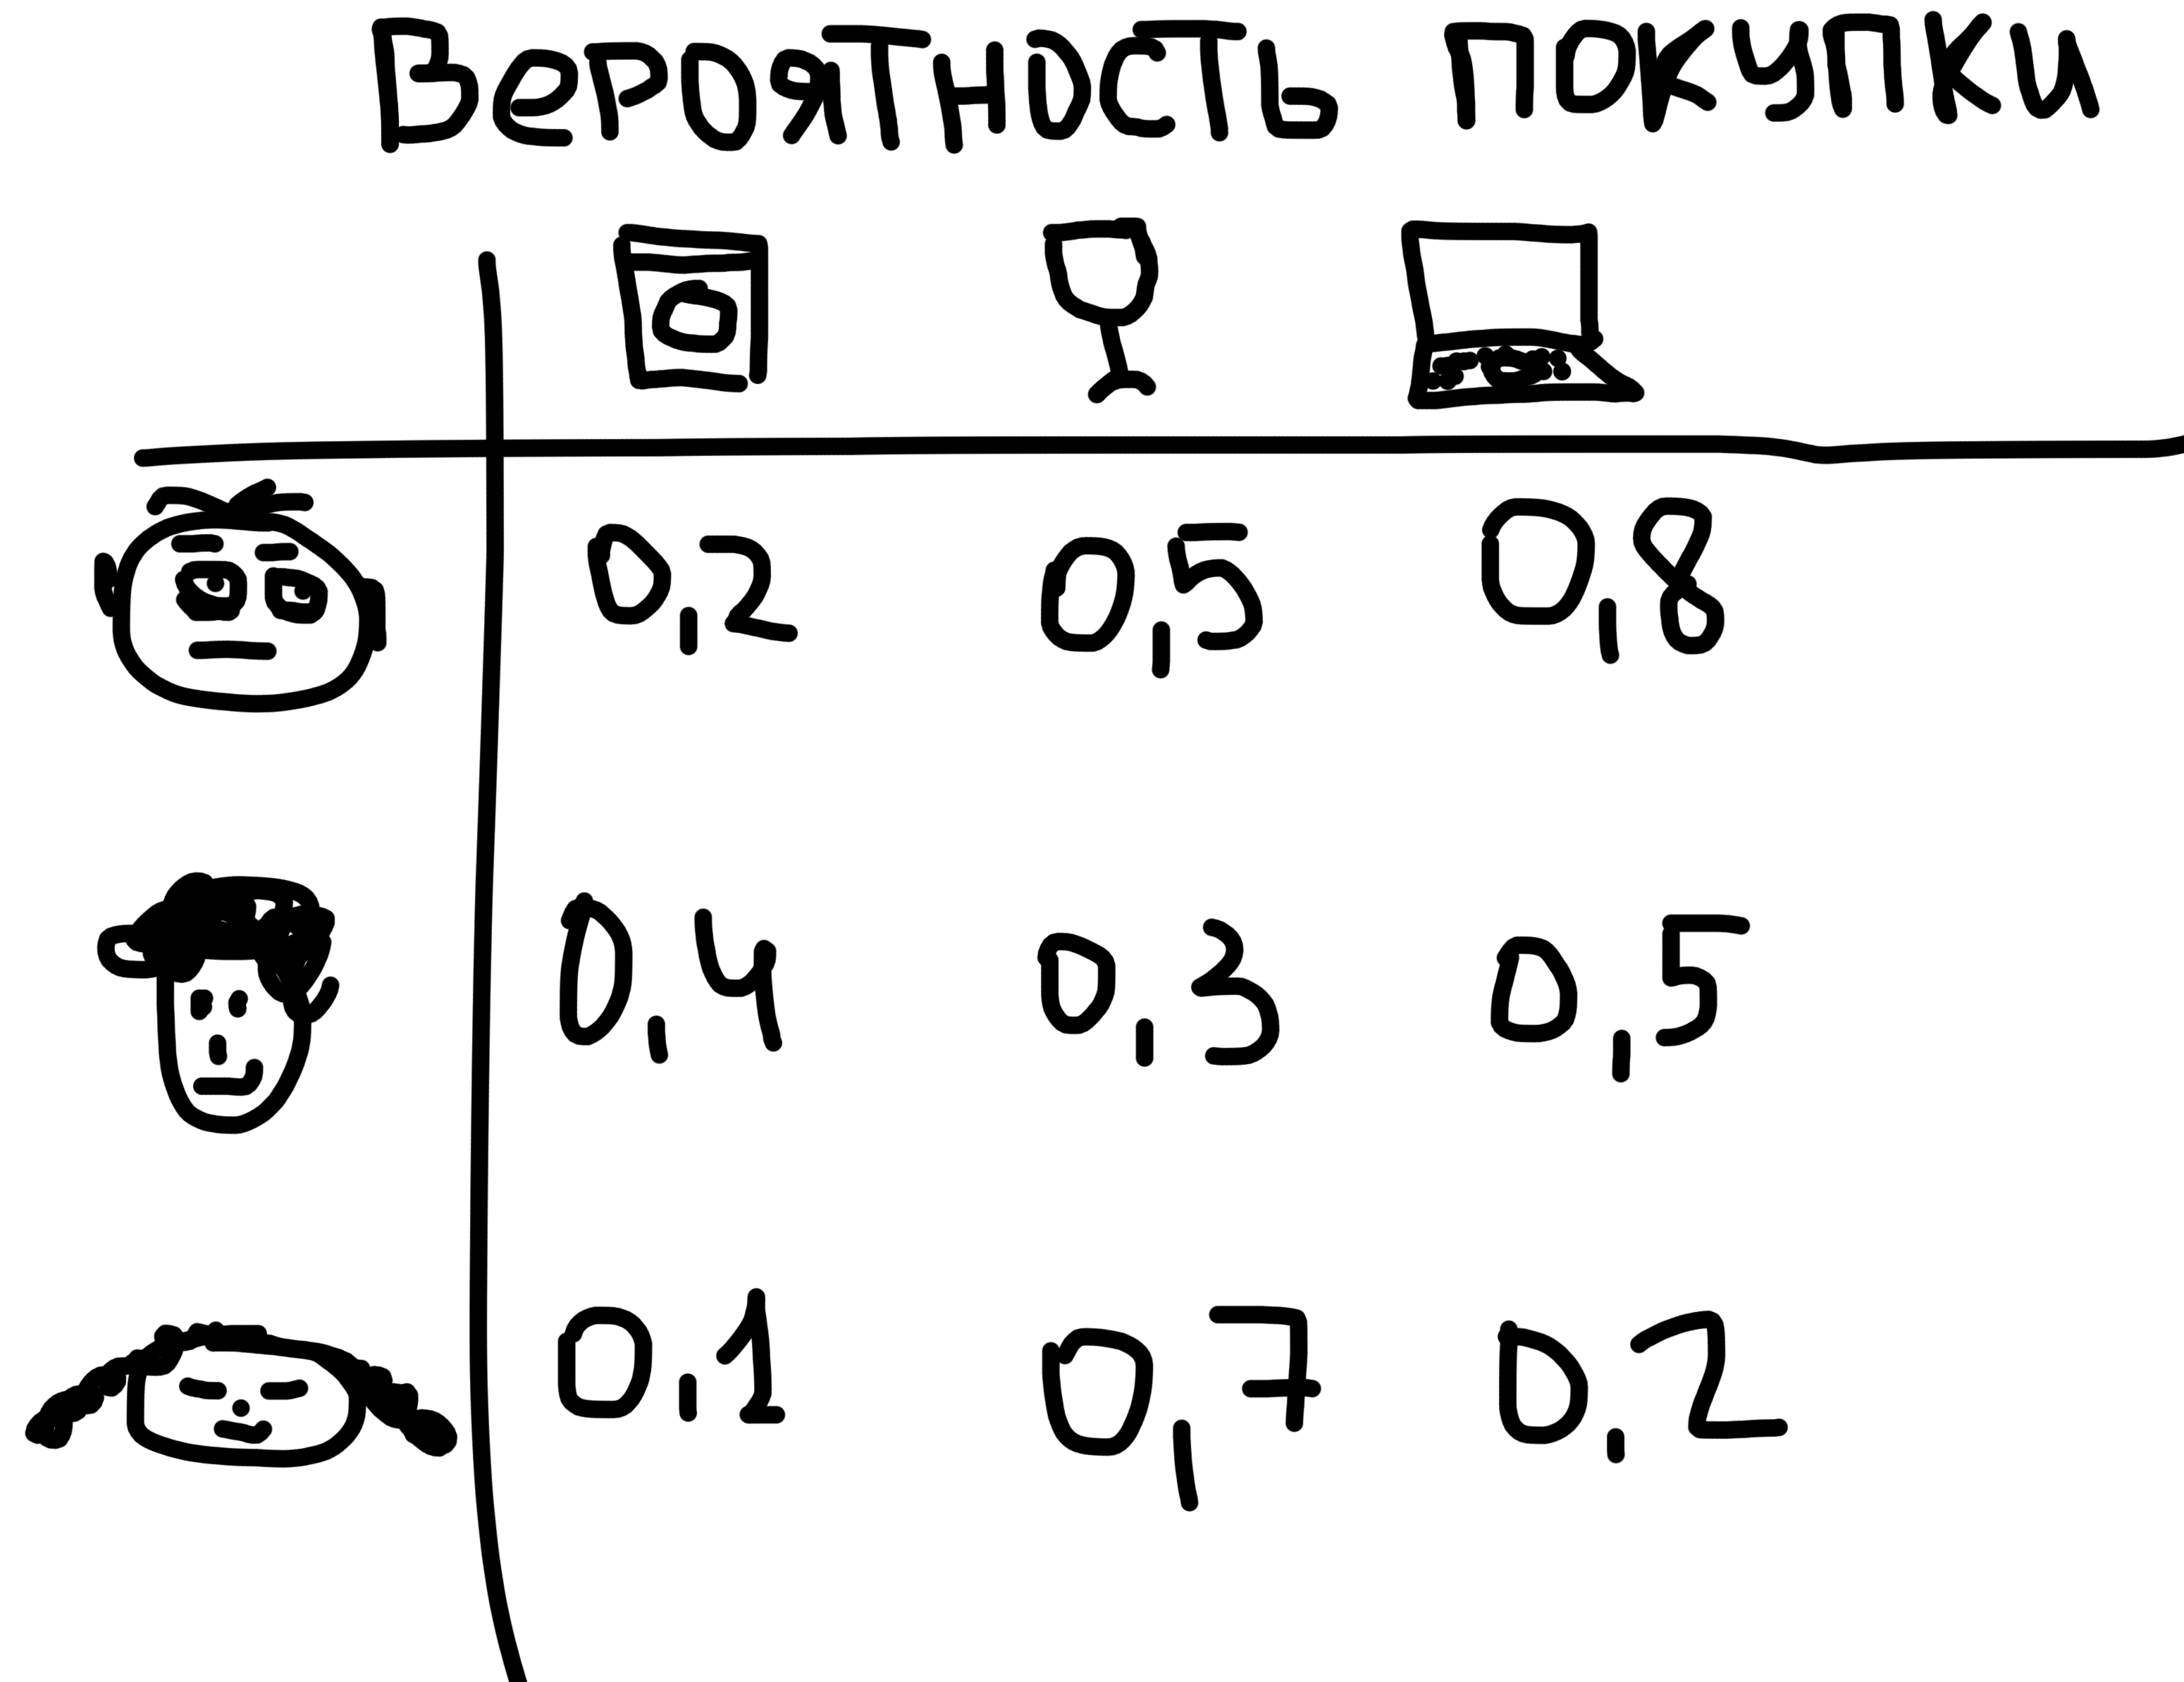 Вероятность покупки
0,2 0,5 0,8
0,4 0,3 0,5
0,1 0,7 0,2